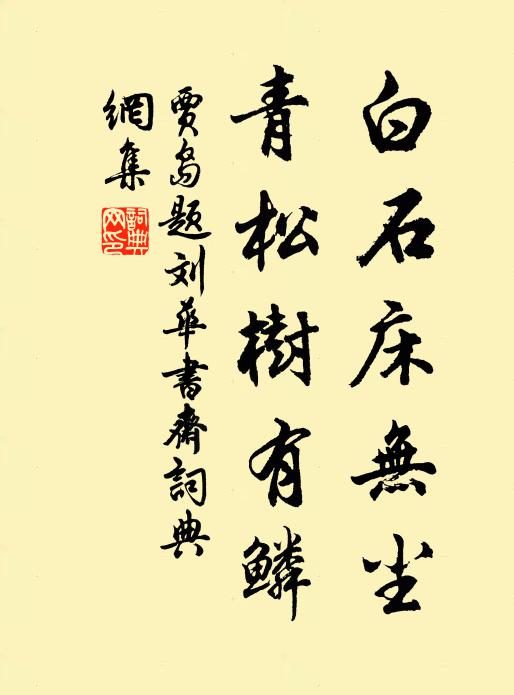 白石床無尘
青松樹有鱗
贾岛题刘華書齋詞典
網集
詞典
网印